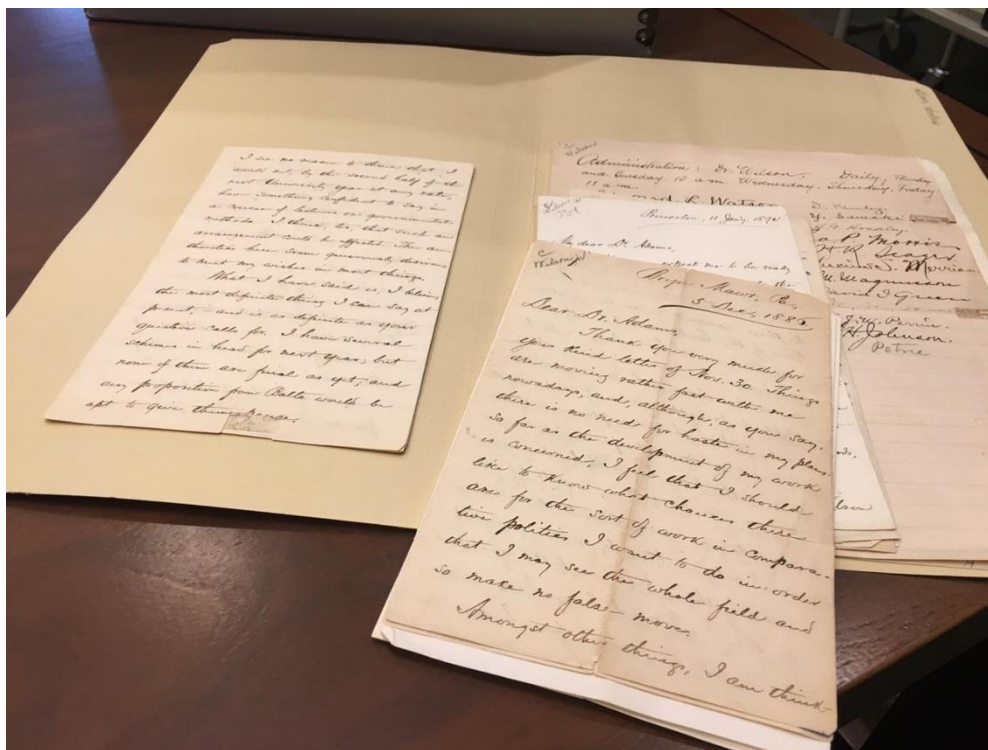 I see no reason to think that I
would not, by the second half of the
next University year at any rate,
have something confident to say in
a series of lectures on governmental
methods. I think, too, that such an
arrangement could be effected. The au-
thorities here seem generously desirous
to meet my wishes in most things.
What I have said is, I believe,
the most definite thing I can say at
present, – and is as definite as your
question calls for. I have several
schemes in head for next year; but
none of them are final as yet, and
any proposition from Balto would be
apt to give them pause.
Wilson
Administration: Dr. Wilson. Daily; Monday
and Tuesday 10 a.m. Wednesday, Thursday, Friday
11 a.m.
L. Watson
Morris
Merriam
Magnusson
David I Green
J. W. Perrin.
H Johnson.
Petrie
Princeton, 11 Jan'y,
My dear Dr. Adams,
expect me to be really
Wilson
Bryn Mawr, Pa.,
5 Dec., 1886
Dear Dr. Adams,
Thank you very much for
your kind letter of Nov. 30. Things
are moving rather fast with me
nowadays, and, although, as you say,
there is no need for haste in my plans
so far as the development of my work
is concerned, I feel that I should
like to know what chances there
are for the sort of work in compara-
tive politics I want to do in order
that I may see the whole field and
so make no false move.
Amongst other things, I am think-